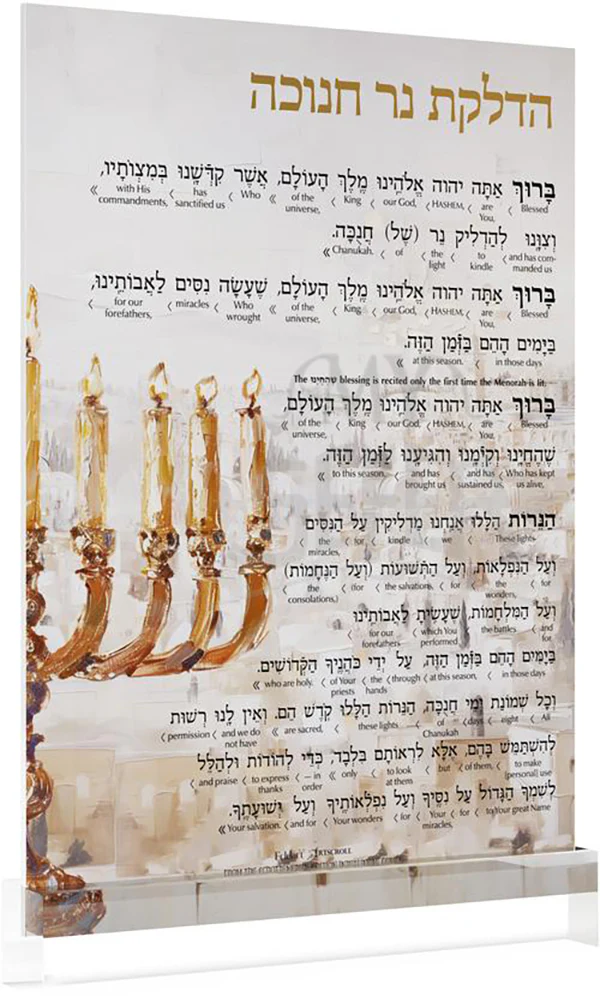 הדלקת נר חנוכה
בָּרוּךְ אַתָּה יהוה אֱלֹהֵֽינוּ מֶֽלֶךְ הָעוֹלָם, אֲשֶׁר קִדְּשָֽׁנוּ בְּמִצְוֹתָיו,
Blessed 〈 are You, 〈 HASHEM, 〈 our God, 〈 King 〈 of the universe, 〈 Who 〈 has sanctified us 〈 with His commandments, 《
וְצִוָּֽנוּ לְהַדְלִיק נֵר (שֶׁל) חֲנֻכָּה.
and has commanded us 〈 to kindle 〈 the light 〈 of 〈 Chanukah. 《
בָּרוּךְ אַתָּה יהוה אֱלֹהֵֽינוּ מֶֽלֶךְ הָעוֹלָם, שֶׁעָשָׂה נִסִּים לַאֲבוֹתֵֽינוּ,
Blessed 〈 are You, 〈 HASHEM, 〈 our God, 〈 King 〈 of the universe, 〈 Who wrought 〈 miracles 〈 for our forefathers, 〈
בַּיָּמִים הָהֵם בַּזְּמַן הַזֶּה.
in those days 〈 at this season. 《
The שֶׁהֶחֱיָֽנוּ blessing is recited only the first time the Menorah is lit. —
בָּרוּךְ אַתָּה יהוה אֱלֹהֵֽינוּ מֶֽלֶךְ הָעוֹלָם,
Blessed 〈 are You, 〈 HASHEM, 〈 our God, 〈 King 〈 of the universe, 〈
שֶׁהֶחֱיָֽנוּ וְקִיְּמָֽנוּ וְהִגִּיעָֽנוּ לַזְּמַן הַזֶּה.
Who has kept us alive, 〈 and has sustained us, 〈 and has brought us 〈 to this season. 《
הַנֵּרוֹת הַלָּלוּ אֲנַֽחְנוּ מַדְלִיקִין עַל הַנִּסִּים
These lights 〈 we 〈 kindle 〈 for 〈 the miracles, 〈
וְעַל הַנִּפְלָאוֹת, וְעַל הַתְּשׁוּעוֹת (וְעַל הַנֶּחָמוֹת)
for 〈 the wonders, 〈 for 〈 the salvations, 〈 (for 〈 the consolations,) 〈
וְעַל הַמִּלְחָמוֹת, שֶׁעָשִֽׂיתָ לַאֲבוֹתֵֽינוּ
and for 〈 the battles 〈 which You performed 〈 for our forefathers 〈
בַּיָּמִים הָהֵם בַּזְּמַן הַזֶּה, עַל יְדֵי כֹּהֲנֶֽיךָ הַקְּדוֹשִׁים.
in those days 〈 at this season, 〈 through 〈 the hands 〈 of Your priests 〈 who are holy. 《
וְכָל שְׁמוֹנַת יְמֵי חֲנֻכָּה, הַנֵּרוֹת הַלָּלוּ קֹֽדֶשׁ הֵם. וְאֵין לָֽנוּ רְשׁוּת
All 〈 eight 〈 days 〈 of Chanukah 〈 these lights 〈 are sacred, 《 and we do not have 〈 permission 〈
לְהִשְׁתַּמֵּשׁ בָּהֶם, אֶלָּא לִרְאוֹתָם בִּלְבָד, כְּדֵי לְהוֹדוֹת וּלְהַלֵּל
to make (personal) use 〈 of them, 〈 but 〈 to look at them 〈 only 〈 — in order 〈 to express thanks 〈 and praise 〈
לְשִׁמְךָ הַגָּדוֹל עַל נִסֶּֽיךָ וְעַל נִפְלְאוֹתֶֽיךָ וְעַל יְשׁוּעָתֶֽךָ.
to Your great Name 〈 for 〈 Your miracles, 〈 for 〈 Your wonders 〈 and for 〈 Your salvation. 《
ARTSCROLL